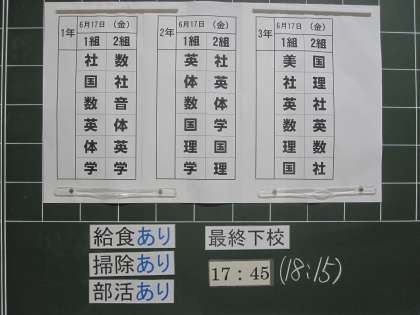 1年 6月17日 (金)
1組 2組
社 数
国 社
数 音
英 体
体 英
学 学
2年 6月17日 (金)
1組 2組
英 社
体 英
数 体
国 学
理 国
学 理
3年 6月17日 (金)
1組 2組
美 国
社 理
英 社
数 英
理 数
国 社
給食あり 最終下校
掃除あり 17:45 (18:15)
部活あり